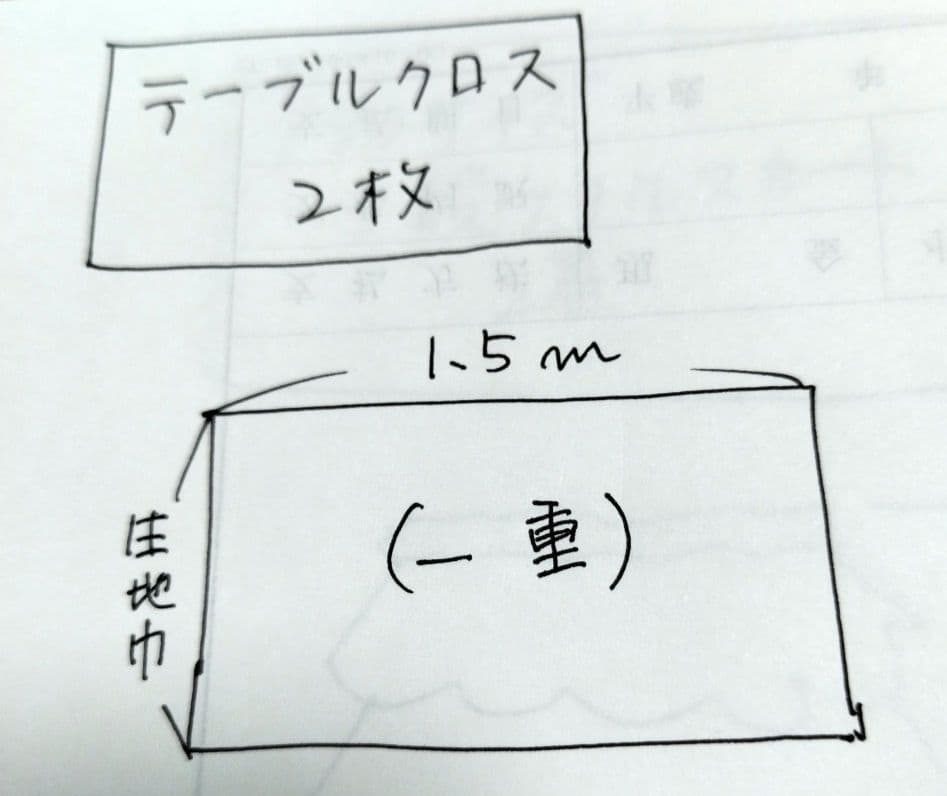 テーブルクロス
2枚
1.5m
(一重)
生地巾